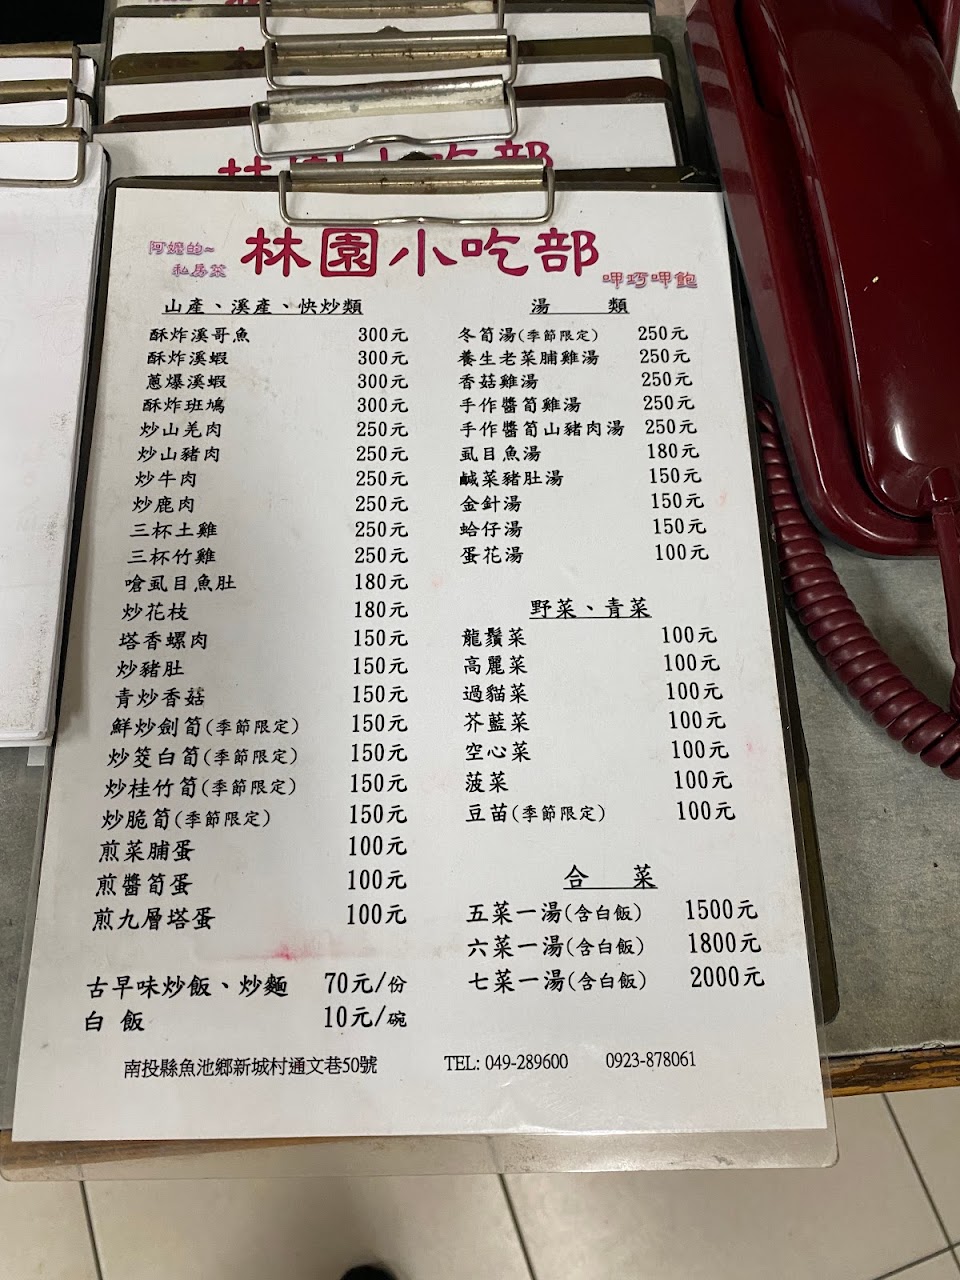 林園小吃部
阿嬤的~
私房菜
林園小吃部
呷巧呷飽
山產、溪產、快炒類
酥炸溪哥魚 300元
酥炸溪蝦 300元
蔥爆溪蝦 300元
酥炸班鳩 300元
炒山羌肉 250元
炒山豬肉 250元
炒牛肉 250元
炒鹿肉 250元
三杯土雞 250元
三杯竹雞 250元
嗆虱目魚肚 180元
炒花枝 180元
塔香螺肉 150元
炒豬肚 150元
青炒香菇 150元
鮮炒劍筍(季節限定) 150元
炒筊白筍(季節限定) 150元
炒桂竹筍(季節限定) 150元
炒脆筍(季節限定) 150元
煎菜脯蛋 100元
煎醬筍蛋 100元
煎九層塔蛋 100元
古早味炒飯、炒麵 70元/份
白飯 10元/碗
湯 類
冬筍湯(季節限定) 250元
養生老菜脯雞湯 250元
香菇雞湯 250元
手作醬筍雞湯 250元
手作醬筍山豬肉湯 250元
虱目魚湯 180元
鹹菜豬肚湯 150元
金針湯 150元
蛤仔湯 150元
蛋花湯 100元
野菜、青菜
龍鬚菜 100元
高麗菜 100元
過貓菜 100元
芥藍菜 100元
空心菜 100元
菠菜 100元
豆苗(季節限定) 100元
合 菜
五菜一湯(含白飯) 1500元
六菜一湯(含白飯) 1800元
七菜一湯(含白飯) 2000元
南投縣魚池鄉新城村通文巷50號 TEL: 049-289600 0923-878061